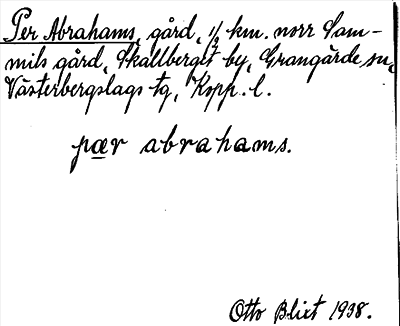 Per Abrahams, gård, ½ km. norr Sam-
mils gård, Skallberget by, Grangärde sn,
Västerbergslags tg, Kopp. l.
pær abrahams.
Otto Blixt 1938.